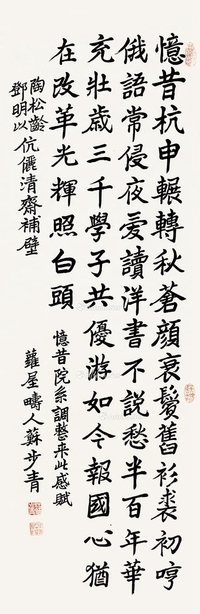 憶昔杭申輾轉秋蒼顏衰鬢舊衫裘初哼
俄語常侵夜愛讀洋書不說愁半百年華
充壯歲三千學子共優游如今報國心猶
在改革光輝照白頭
憶昔院系調整来此感賦
陶松齡
鄧明以
伉儷清齋補壁
蘿屋疇人蘇步青